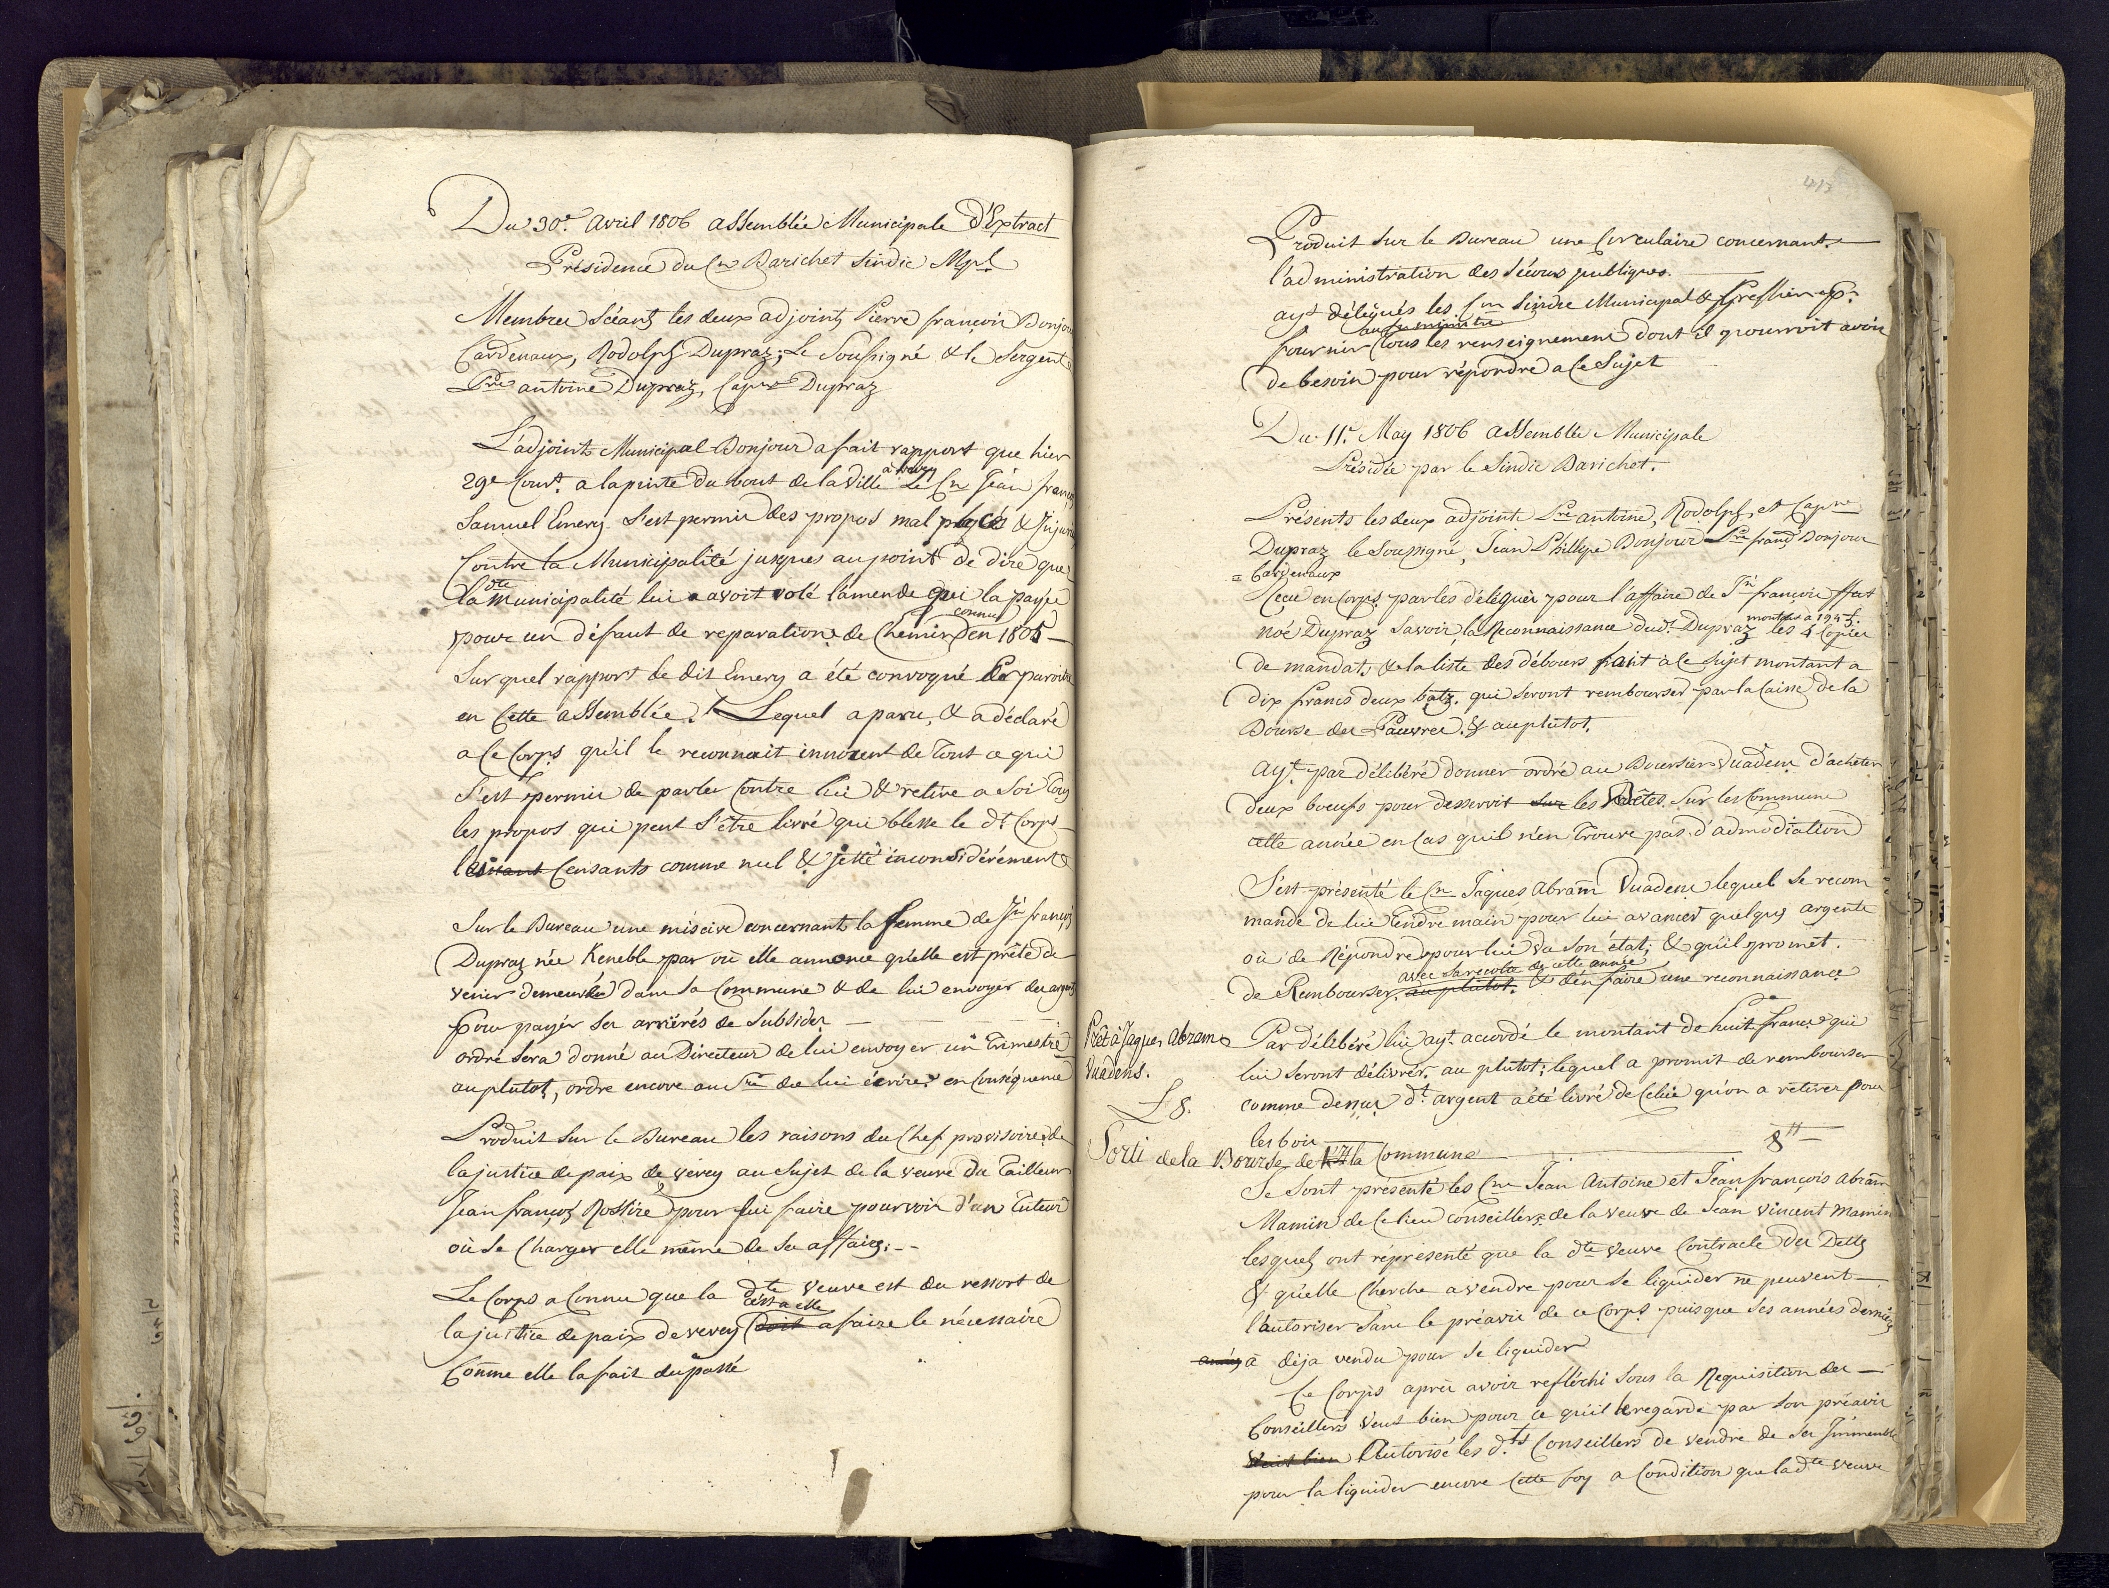 Du 30e. Avril 1806 assemblée Municipale d'Extract
Présidence du Cn Barichet Sindic Mpl
Membres Scéants les deux adjoints Pierre françois Bonjour
Cardenaux, Rodolph Dupraz, Le Soussigné & le Sergent
Pre antoine Dupraz, Capne Dupraz
L'adjoint Municipal Bonjour a fait rapport que hier
29e Court. a la pinte du bout de la Ville Le Cn Jean françs
Samuel Emery S'est permis des propos mal placés & Injurieux
Contre la Municipalité jusques au point de dire que
la dte Municipalité lui avoit volé l'amende qui la payée
connus
pour un défaut de reparations de Chemins en 1805
Sur quel rapport le dit Emery a été convoqué de paroitre
en Cette assemblée. Lequel a paru, & a déclaré
a Ce Corps qu'il le reconnait innocent de Tout ce qui
S'est permis de parler Contre lui & retire a Soi Tous
les propos qui peut S'être livré qui blesse le dt Corps
les Censants comme nul & jetté inconsidérément
Sur le Bureau une miscive concernant la femme de Jn françois
Dupraz née Keneble par où elle annonce qu'elle est prête de
venir demeurer dans sa Commune & de lui envoyer des argents
pour payer ses arriérés de Subsides
ordre Sera donné au Directeur de lui envoyer un Trimestre
au plutot, ordre encore au Sre de lui écrire en Conséquence
Produit Sur le Bureau les raisons du Chef provisoire de
la justice de paix de Vevey au Sujet de la veuve du Tailleur
Jean françois pour lui faire pourvoir d'un Tuteur
où Se Charger elle même de Ses affaires.
Le Corps a Connu que la dte Veuve est du ressort de
c'est a elle
la justice de paix de vevey doit a faire le nécessaire
Comme elle la fait du passé
413
Produit Sur le Bureau une Circulaire concernant
l'administration des Sécours publiques.
ayt délégués les Cns Sindic Municipal & Greffier pr
au Sr ministre
fournir Tous les renseignement dont il pourroit avoir
de besoin pour répondre a Ce Sujet
Du 11e. May 1806 assemblée Municipale
Présidée par le Sindic Barichet.
Présents les deux adjoint Pre antoine, Rodolph, et Capne
Dupraz le Soussigné, Jean Phillipe Bonjour Pre franç Bonjour
= Cardenaux
Reçu en Corps par les déléguès pour l'affaire de Jn françois ffeu
montant à
noé Dupraz Savoir, la Reconnaissance dudt Dupraz les 4 Copies
de mandat, & la liste des débours fait à ce Sujet montant a
Dix francs deux batz. qui Seront rembourser par la Caisse de la
Bourse des Pauvres. & au plutot.
ayt par délibéré donner ordre au Boursier Vuadens d'acheter
deux boeufs pour desservir Sur les Bêtes Sur les Commune
cette année en Cas quil n'en Trouve pas d'admodiation
S'est présenté le Cn Jaques Abram Vuadens lequel se recom
mande de lui Tendre main pour lui avancer quelques argents
où de Répondre pour lui vu Son état, & qu'il promet.
avec sa recolte de cette année
de Rembourser, au plutot. & d'en faire une reconnaissance
Prêt à Jaques Abram
Vuadens.
L 8.
Par délibéré lui ayt acordé le montant de huit francs qui
lui Seront délivrés au plutot; lequel a promit de rembourser
comme dessus dt argent a été livré de Celui qu'on a retirer pour
les bois
Sorti de la Bourse de la Commune 8 ₶
Se Sont présenté les Cns Jean Antoine et Jean françois Abram
Mamin de Ce lieu conseillers de la Veuve de Jean Vincent Mamin
lesquels ont réprésenté que la dte Veuve Contracte des Dettes
& qu'elle Cherche a vendre pour Se liquider ne peuvent
l'autoriser Sans le préavis de ce Corps puisque Ses années dernière
a déja vendu pour Se liquider
Ce Corps après avoir reflèchi Sous la Requisition des
Conseillers veut bien pour ce qu'il le regarde par Son préavis
veut bien Autorise les dts Conseillers de vendre de Ses Immeuble
pour la liquider encore Cette foy a Condition que la dte veuve